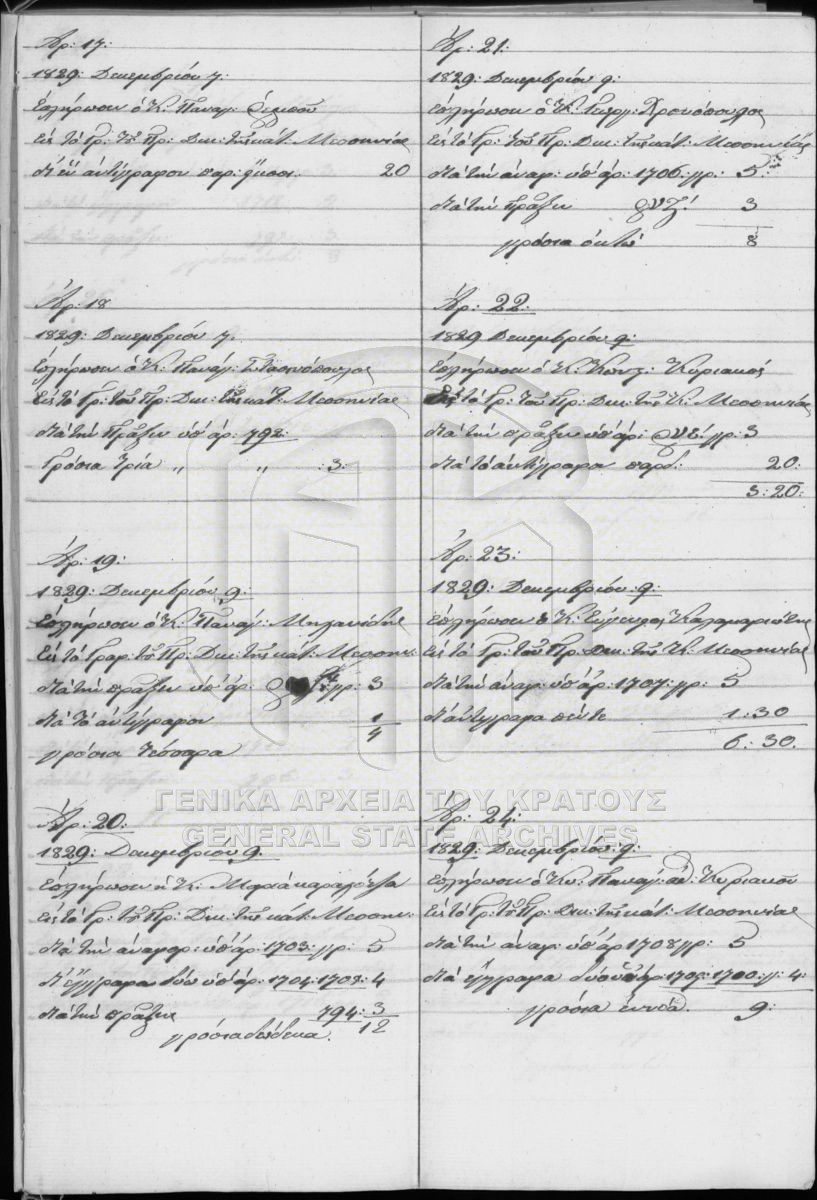 Ἀρ: 17:
1829: Δεκεμβρίου 7:
Ἐπλήρωσεν ὁ Κ: Παναγ:
Εἰς τὸ Γρ: τοῦ Πρ: Δικ: τῆς κάτ: Μεσσηνίας
Δι' ἓν ἀντίγραφον παρ: εἴκοσι. 20
Ἀρ: 18
1829: Δεκεμβρίου 7.
Ἐπλήρωσεν ὁ Κ: Παναγ:
Εἰς τὸ Γρ: τοῦ Πρ: Δικ: τῆς κάτ: Μεσσηνίας
Διὰ τὴν Πρᾶξιν ὑπ' ἀρ: 792:
Γρόσια τρία " " :3:
Ἀρ: 19:
1829: Δεκεμβρίου 9:
Ἐπλήρωσεν ὁ Κ: Παναγ: Μηλιανίδης
Εἰς τὸ Γραμ: τοῦ Πρ: Δικ: τῆς κάτ: Μεσσην:
Διὰ τὴν πρᾶξιν ὑπ' ἀρ: γρ: 3
Διὰ τὸ ἀντίγραφον 1
γρόσια τέσσαρα 4
Ἀρ: 20:
1829: Δεκεμβρίου 9.
Ἐπλήρωσεν ἡ Κ: Μαρία
Εἰς τὸ Γρ: τοῦ Πρ: Δικ: τῆς κάτ: Μεσσην:
Διὰ τὴν ἀναφορ: ὑπ' ἀρ: 1703: γρ: 5
Δι' ἔγγραφα δύω ὑπ' ἀρ: 1704: 1708: 4
Διὰ τὴν πρᾶξιν 794: 3
γρόσια δώδεκα. 12
Ἀρ: 21:
1829: Δεκεμβρίου 9:
Ἐπλήρωσεν ὁ Κ: Γεωργ: Χρονόπουλος
Εἰς τὸ Γρ: τοῦ Πρ: Δικ: τῆς κάτ: Μεσσηνίας
Διὰ τὴν ἀναφ: ὑπ' ἀρ: 1706: γρ: 5:
Διὰ τὴν Πρᾶξιν 3
γρόσια ὀκτὼ 8
Ἀρ: 22:
1829 Δεκεμβρίου 9:
Ἐπλήρωσεν ὁ Κ: Κυριακός
Εἰς τὸ Γρ: τοῦ Πρ: Δικ: τῆς Κ: Μεσσηνίας
Διὰ τὴν πρᾶξιν ὑπ' ἀρ: γρ: 3
Διὰ τὸ ἀντίγραφον παρδ: 20:
3: 20:
Ἀρ: 23:
1829: Δεκεμβρίου: 9:
Ἐπλήρωσεν ὁ Κ: Καλαμαριώτης
Εἰς τὸ Γρ: τοῦ Πρ: Δικ: τῆς Κ: Μεσσηνίας
Διὰ τὴν ἀναφ: ὑπ' ἀρ: 1707: γρ: 5
Δι' ἀντίγραφα πέντε 1: 30
6: 30.
Ἀρ: 24:
1829: Δεκεμβρίου: 9:
Ἐπλήρωσεν ὁ Κυ: Παναγ: Κυριακοῦ
Εἰς τὸ Γρ: τοῦ Πρ: Δικ: τῆς κάτ: Μεσσηνίας
Διὰ τὴν ἀναφ: ὑπ' ἀρ 1708 γρ: 5
Διὰ ἔγγραφα δύο ὑπ' ἀρ: 1709: 1700: γ: 4:
γρόσια ἐννέα. 9:
ΓΕΝΙΚΑ ΑΡΧΕΙΑ ΤΟΥ ΚΡΑΤΟΥΣ
GENERAL STATE ARCHIVES